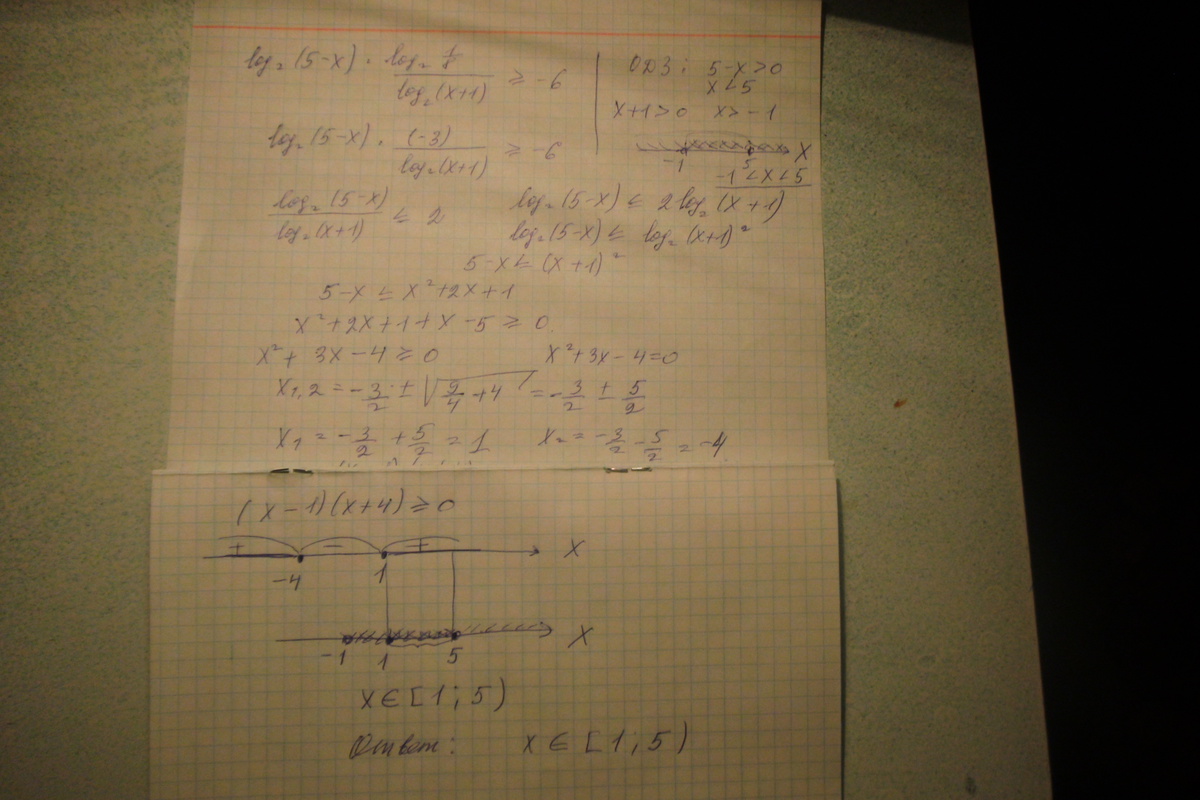 log₂(5-x) · log₂ 1/8 / log₂(x+1) ≥ -6
ОДЗ: 5-x>0
x<5
x+1>0 x>-1
log₂(5-x) · (-3) / log₂(x+1) ≥ -6
-1 5 x
-1<x<5
log₂(5-x) / log₂(x+1) ≤ 2
log₂(5-x) ≤ 2log₂(x+1)
log₂(5-x) ≤ log₂(x+1)²
5-x ≤ (x+1)²
5-x ≤ x²+2x+1
x²+2x+1+x-5 ≥ 0
x²+3x-4 ≥ 0 x²+3x-4=0
x₁,₂ = -3/2 ± √(9/4+4) = -3/2 ± 5/2
x₁ = -3/2 + 5/2 = 1 x₂ = -3/2 - 5/2 = -4
(x-1)(x+4) ≥ 0
+ - +
-4 1 x
-1 1 5 x
x ∈ [1; 5)
Ответ: x ∈ [1; 5)